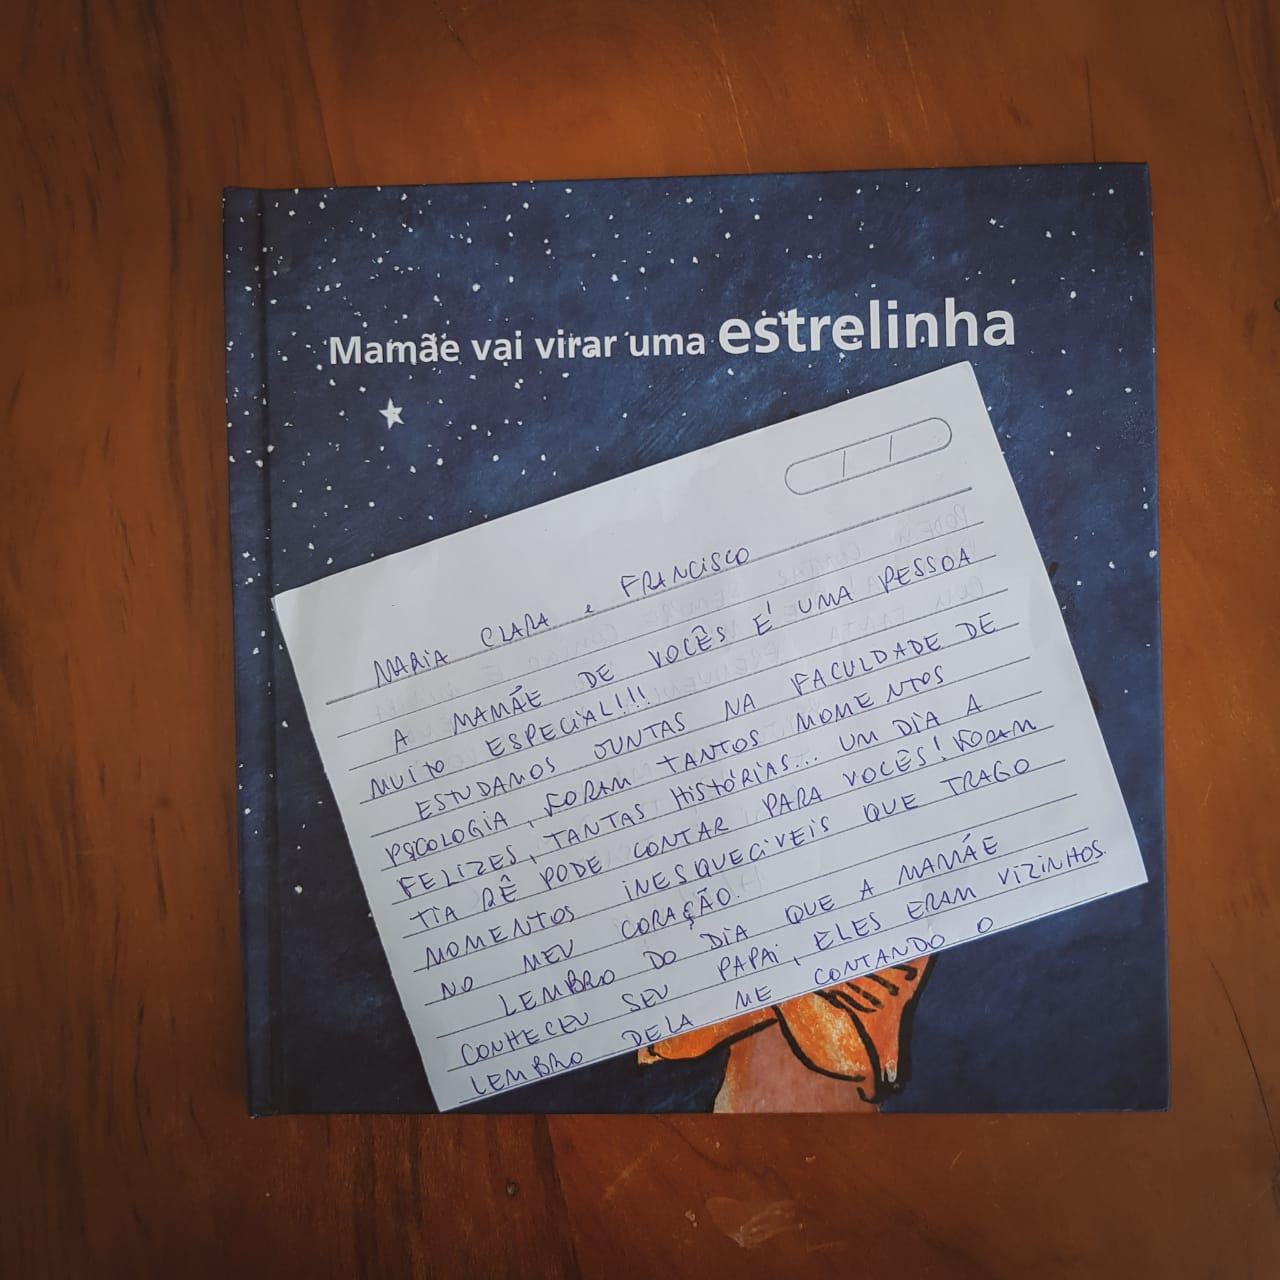 Mamãe vai virar uma estrelinha
MARIA CLARA e FRANCISCO
A MAMÃE DE VOCÊS É UMA PESSOA
MUITO ESPECIAL!!!
ESTUDAMOS JUNTAS NA FACULDADE DE
PSCOLOGIA, FORAM TANTOS MOMENTOS
FELIZES, TANTAS HISTÓRIAS... UM DIA A
TIA RÊ PODE CONTAR PARA VOCÊS! FORAM
MOMENTOS INESQUECIVEIS QUE TRAGO
NO MEU CORAÇÃO.
LEMBRO DO DIA QUE A MAMÃE
CONHECEU SEU PAPAI, ELES ERAM VIZINHOS.
LEMBRO DELA ME CONTANDO O